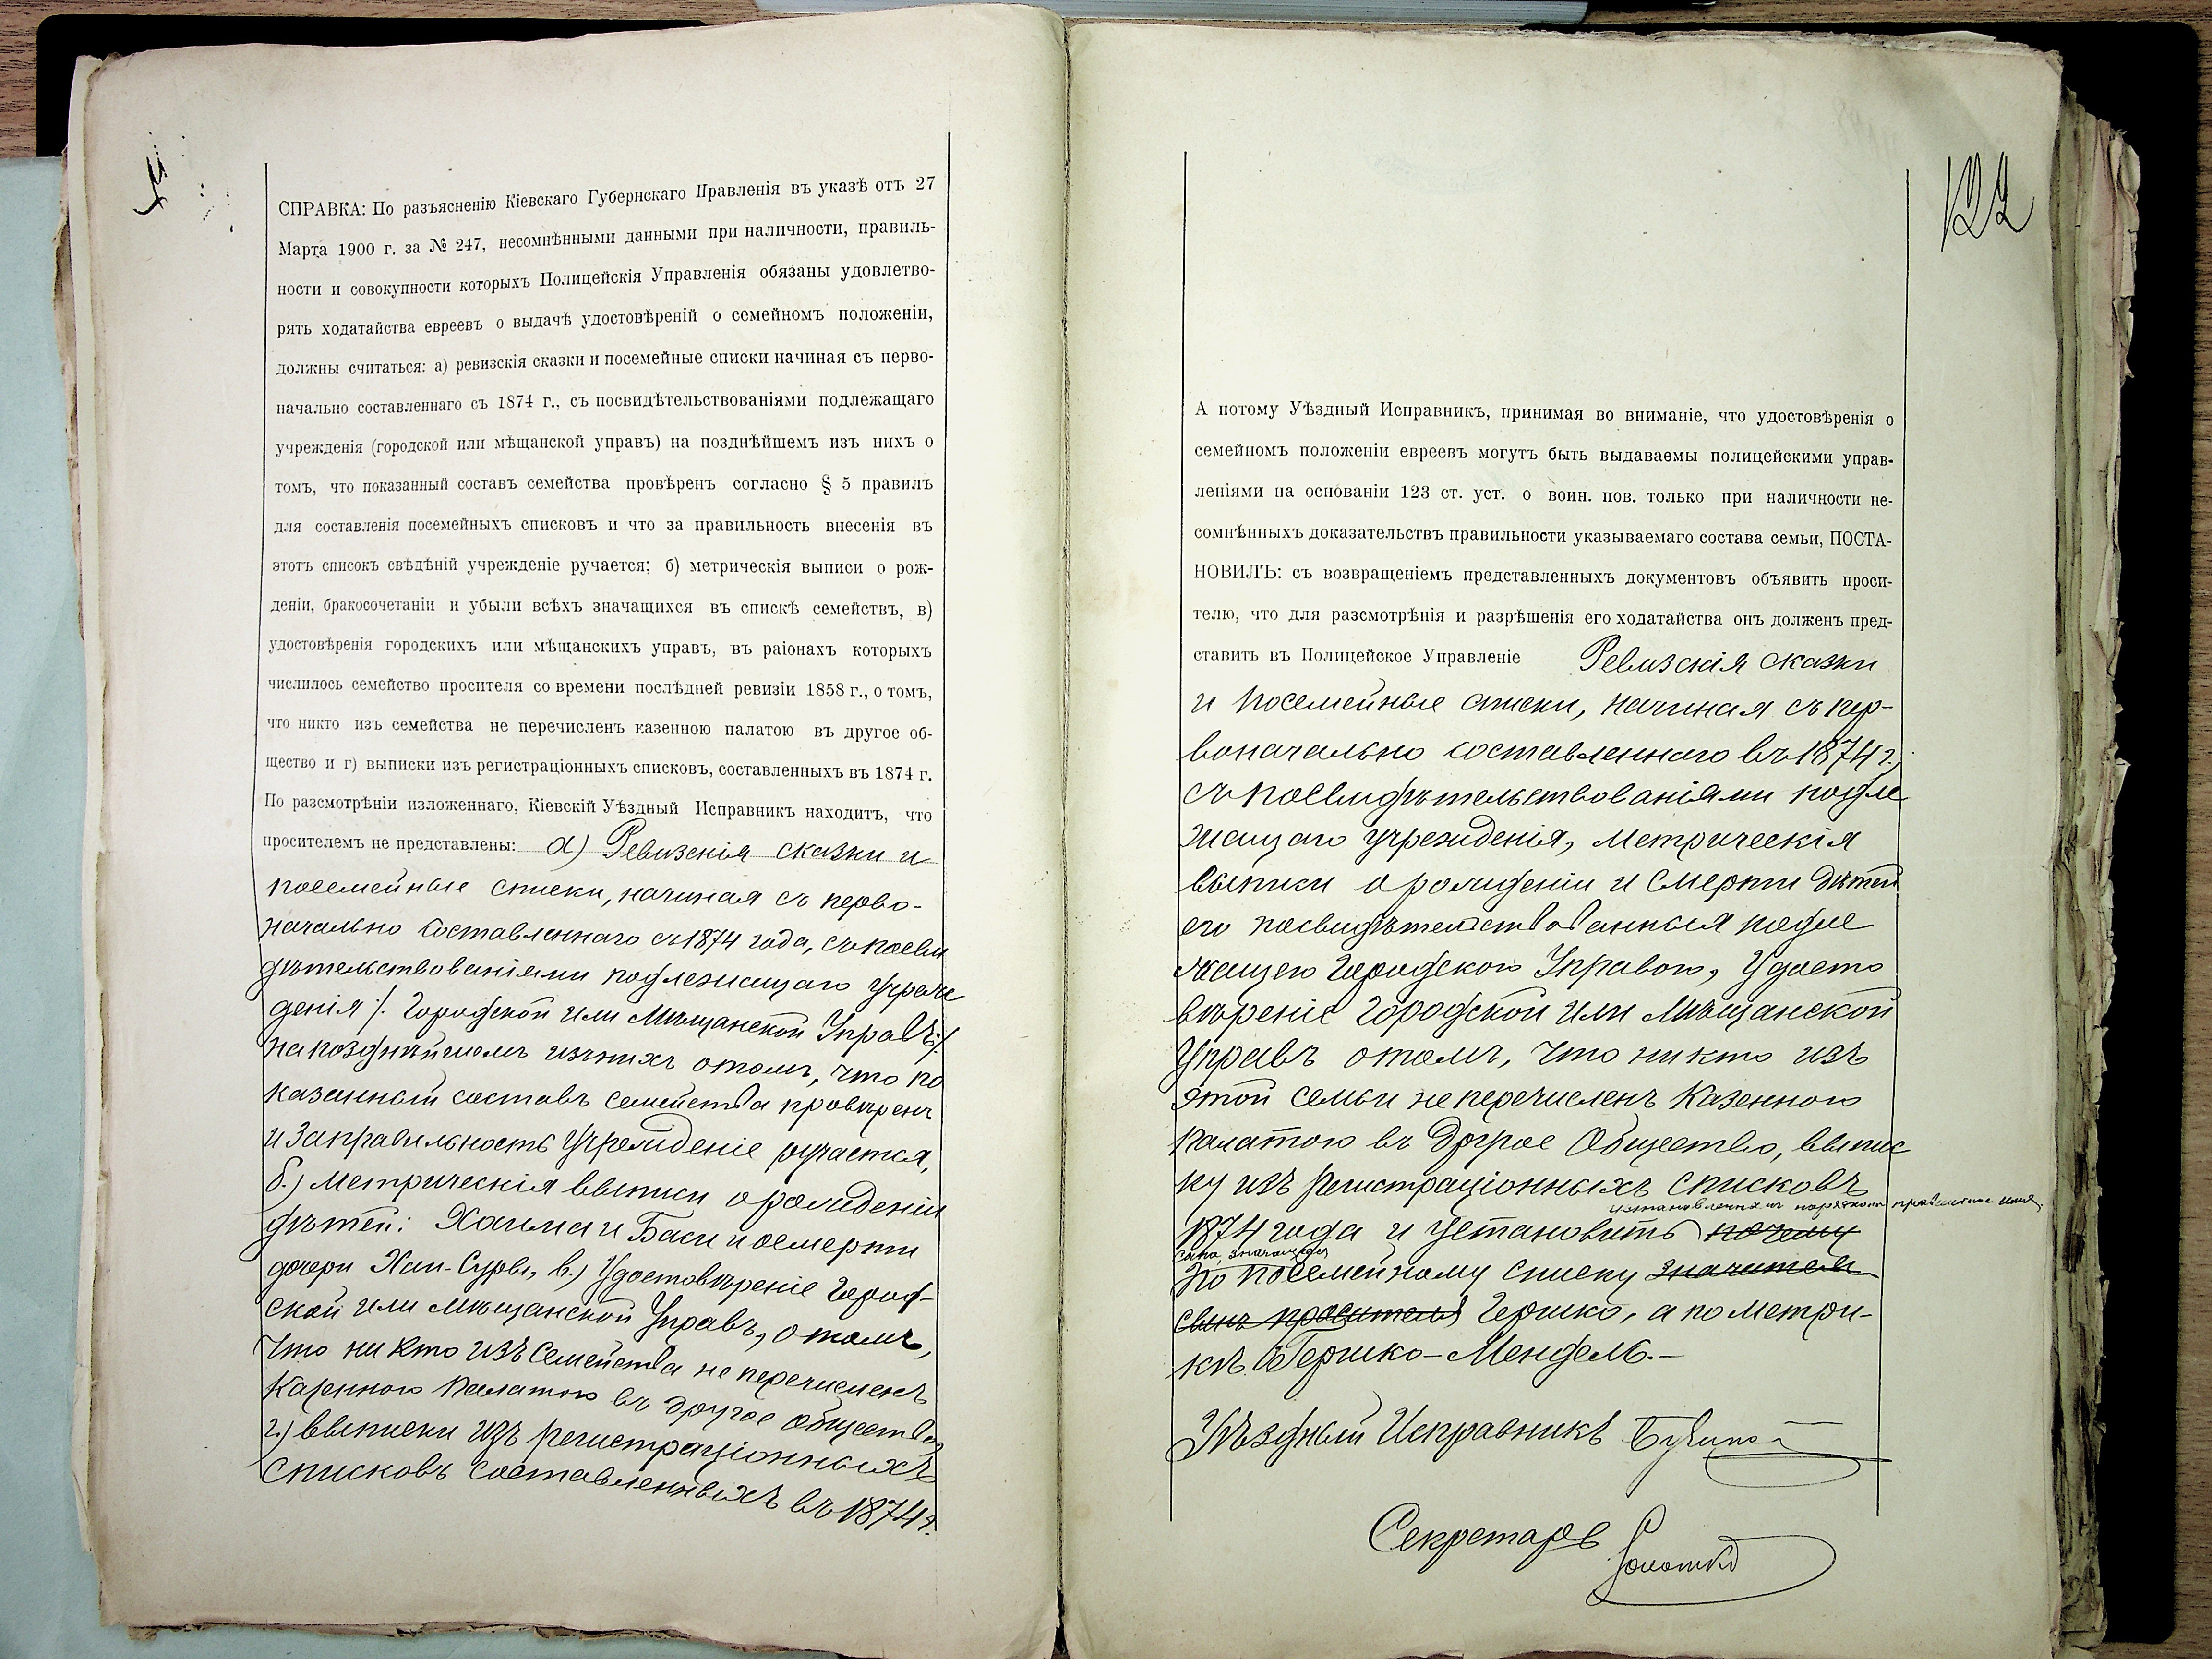 СПРАВКА: По разъясненію Кіевскаго Губернскаго Правленія въ указѣ отъ 27
Марта 1900 г. за № 247, несомнѣнными данными при наличности, правиль-
ности и совокупности которыхъ Полицейскія Управленія обязаны удовлетво-
рять ходатайства евреевъ о выдачѣ удостовѣреній о семейномъ положеніи,
должны считаться: а) ревизскія сказки и посемейные списки начиная съ перво-
начально составленнаго съ 1874 г., съ посвидѣтельствованіями подлежащаго
учрежденія (городской или мѣщанской управъ) на позднѣйшемъ изъ нихъ о
томъ, что показанный составъ семейства провѣренъ согласно § 5 правилъ
для составленія посемейныхъ списковъ и что за правильность внесенія въ
этотъ списокъ свѣдѣній учрежденіе ручается; б) метрическія выписи о рож-
деніи, бракосочетаніи и убыли всѣхъ значащихся въ спискѣ семействъ, в)
удостовѣренія городскихъ или мѣщанскихъ управъ, въ раіонахъ которыхъ
числилось семейство просителя со времени послѣдней ревизіи 1858 г., о томъ,
что никто изъ семейства не перечисленъ казенною палатою въ другое об-
щество и г) выписки изъ регистраціонныхъ списковъ, составленныхъ въ 1874 г.
По разсмотрѣніи изложеннаго, Кіевскій Уѣздный Исправникъ находитъ, что
просителемъ не представлены: а) Ревизскія сказки и
посемейные списки, начиная съ перво-
начально составленнаго съ 1874 года, съ посви
дѣтельствованіями подлежащаго Учреж
денія /: Городской или Мѣщанской Управъ :/
на позднѣйшемъ изъ нихъ о томъ, что по
казанный составъ семейства провѣренъ
и за правильность Учрежденіе ручается,
б.) Метрическія выписи о рожденіи
дѣтей: Хаима и Баси и о смерти
дочери Хаи-Суры, в.) Удостовѣреніе Город-
ской или Мѣщанской Управъ, о томъ,
что ни кто изъ семейства не перечисленъ
Казенною Палатою въ другое общество,
г.) выписки изъ регистраціонныхъ
списковъ составленныхъ въ 1874 г.
122
А потому Уѣздный Исправникъ, принимая во вниманіе, что удостовѣренія о
семейномъ положеніи евреевъ могутъ быть выдаваемы полицейскими управ-
леніями на основаніи 123 ст. уст. о воин. пов. только при наличности не-
сомнѣнныхъ доказательствъ правильности указываемаго состава семьи, ПОСТА-
НОВИЛЪ: съ возвращеніемъ представленныхъ документовъ объявить проси-
телю, что для разсмотрѣнія и разрѣшенія его ходатайства онъ долженъ пред-
ставить въ Полицейское Управленіе Ревизскія сказки
и посемейные списки, начиная съ пер-
воначально составленнаго въ 1874 г.,
съ посвидѣтельствованіями подле
жащаго учрежденія, Метрическія
выписи о рожденіи и смерти дѣтей
его посвидѣтельствованныя подле
жащею Городскою Управою, Удосто
вѣреніе Городской или Мѣщанской
Управъ о томъ, что никто изъ
этой семьи не перечисленъ Казенною
Палатою въ другое Общество, выпис
ку изъ регистраціонныхъ списковъ
установленнымъ порядкомъ
1874 года и установить почему
сына, значащ
по посемейному списку значится
сынъ просителя Гершко, а по метри-
кѣ Гершко-Мендель.-
Уѣздный Исправникъ
Секретарь